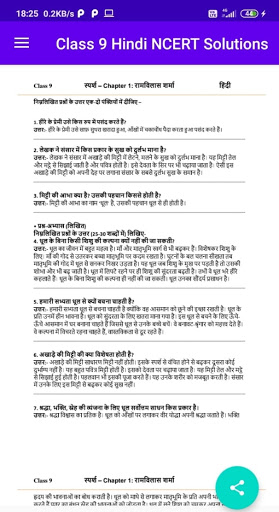 18:25 0.2KB/s P P
44
Class 9 Hindi NCERT Solutions
Class 9 स्पर्श – Chapter 1: रामविलास शर्मा हिंदी
निम्नलिखित प्रश्नों के उत्तर एक-दो पंक्तियों में दीजिए –
1. हीरे के प्रेमी उसे किस रूप में पसंद करते हैं?
उत्तर:- हीरे के प्रेमी उसे साफ़ सुथरा खरादा हुआ, आँखों में चकाचौंध पैदा करता हुआ पसंद करते हैं।
2. लेखक ने संसार में किस प्रकार के सुख को दुर्लभ माना है?
उत्तर:- लेखक ने संसार में अखाड़े की मिट्टी में लेटने, मलने के सुख को दुर्लभ माना है। यह मिट्टी तेल
और मट्ठे से सिझाई जाती है और पवित्र होती है। इसे देवता के सिर पर भी चढ़ाया जाता है। ऐसी इस
अखाड़े की मिट्टी को अपनी देह पर लगाना संसार के सबसे दुर्लभ सुख के समान है।
3. मिट्टी की आभा क्या है? उसकी पहचान किससे होती है?
उत्तर:- मिट्टी की आभा का नाम 'धूल' है, उसकी पहचान धूल से ही होती है।
• प्रश्न-अभ्यास (लिखित)
निम्नलिखित प्रश्नों के उत्तर (25-30 शब्दों में) लिखिए-
4. धूल के बिना किसी शिशु की कल्पना क्यों नहीं की जा सकती?
उत्तर:- धूल का जीवन में बहुत महत्व है। माँ और मातृभूमि स्वर्ग से भी बढ़कर हैं। विशेषकर शिशु के
लिए। माँ की गोद से उतरकर बच्चा मातृभूमि पर कदम रखता है। घुटनों के बल चलना सीखता तब
मातृभूमि की गोद में धूल से सनकर निखर उठता है। यह धूल जब शिशु के मुख पर पड़ती है तो उसकी
शोभा और भी बढ़ जाती है। धूल में लिपटे रहने पर ही शिशु की सुंदरता बढ़ती है। तभी वे धूल भरे हीरे
कहलाते हैं। धूल के बिना शिशु की कल्पना ही नहीं की जा सकती। धूल उनका सौंदर्य प्रसाधन है।
5. हमारी सभ्यता धूल से क्यों बचना चाहती है?
उत्तर:- हमारी सभ्यता धूल से बचना चाहती है क्योंकि वह आसमान को छूने की इच्छा रखती है। धूल के
प्रति उनमें हीन भावना है। धूल को सुंदरता के लिए खतरा माना गया है। इस धूल से बचने के लिए ऊँचे-
ऊँचे आसमान में घर बनाना चाहते हैं जिससे धूल से उनके बच्चे बचें। वे बनावट श्रृंगार को महत्त्व देते हैं।
वे कल्पना में विचरते रहना चाहते हैं, वास्तविकता से दूर रहते हैं।
6. अखाड़े की मिट्टी की क्या विशेषता होती है?
उत्तर:- अखाड़े की मिट्टी साधारण मिट्टी नहीं होती। इसके स्पर्श से वंचित होने से बढ़कर दूसरा कोई
दुर्भाग्य नहीं है। यह बहुत पवित्र मिट्टी होती है। इसको देवता पर चढ़ाया जाता है। यह मिट्टी तेल और मट्ठे
से सिझाई हुई होती है। पहलवान भी इसकी पूजा करते हैं। यह उनके शरीर को मजबूत करती है। संसार
में उनके लिए इस मिट्टी से बढ़कर कोई सुख नहीं।
7. श्रद्धा, भक्ति, स्नेह की व्यंजना के लिए धूल सर्वोत्तम साधन किस प्रकार है?
उत्तर:- श्रद्धा विश्वास का प्रतिक है। धूल को आँखों पर लगाकर वीर योद्धा अपनी श्रद्धा जताते हैं। भक्ति
Class 9 स्पर्श – Chapter 1: रामविलास शर्मा
हृदय की भावनाओं का बोध कराती है। धूल को माथे से लगाकर मातृभूमि के प्रति अपनी